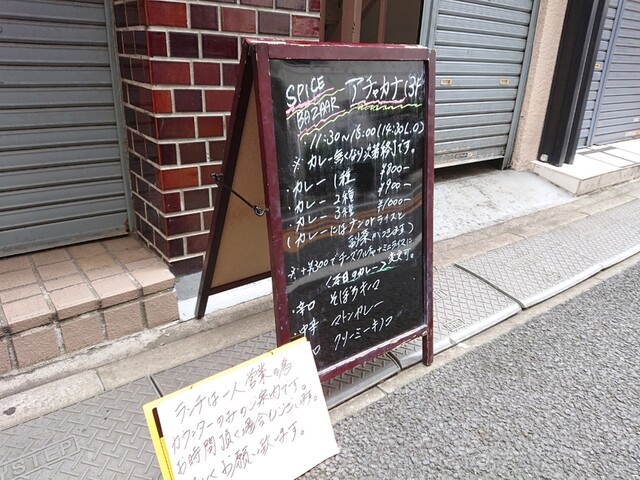 SPICE
BAZAAR アチャカナ 3F
・11:30〜15:00 (14:30 L.O)
※カレー無くなり次第終了です。
・カレー 1種 ¥800-
・カレー 2種 ¥900-
・カレー 3種 ¥1000-
(カレーにはナンorライスと
副菜がつきます)
※+¥300でチーズクルチャ+ミニライスに
変更可。
〈本日のカレー〉
・辛口 そぼろキーマ
・中辛 マトンカレー
口 クリーミーキノコ
ランチは一人営業の為
カウンターのみのご案内です。
お時間頂く場合もございます。
お願い致します。
STEP